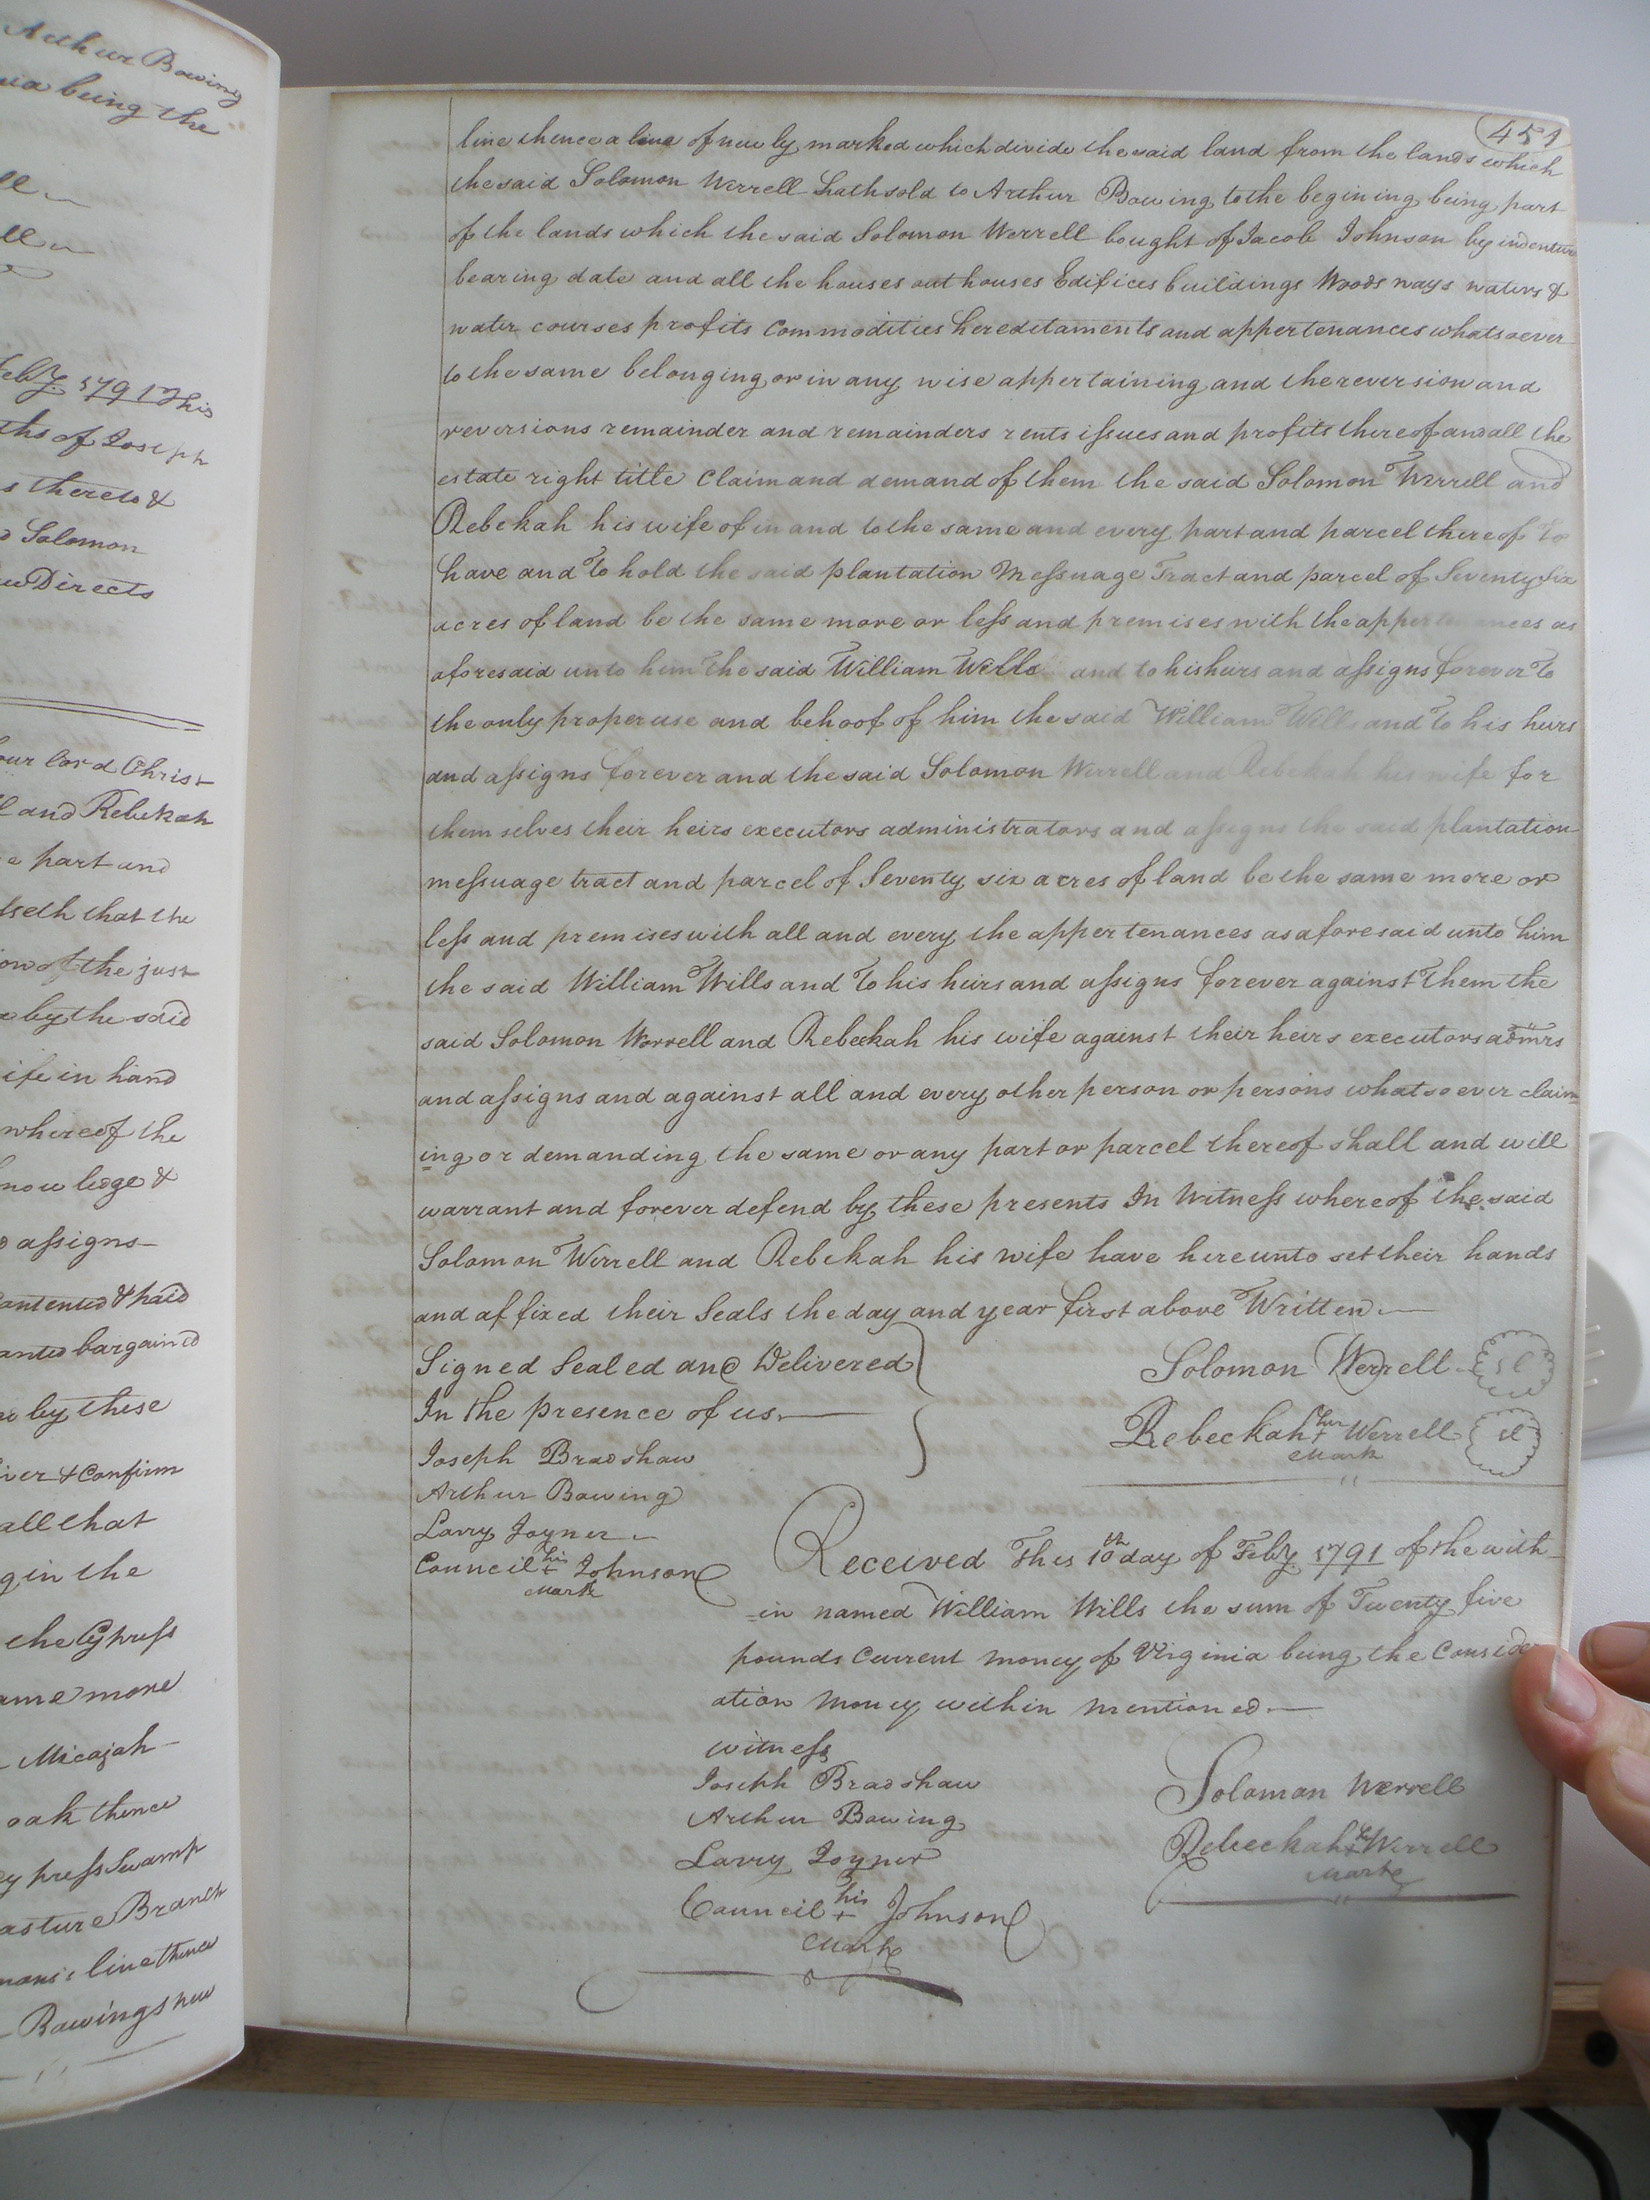 Arthur Bowing
being the
Feby 1791 This
ths of Joseph
s thereto &
Solomon
Directs
our lord Christ
and Rebekah
e part and
seth that the
of the just
by the said
ife in hand
whereof the
now ledge &
assigns
contented & paid
anted bargained
by these
iver & Confirm
all that
g in the
the Cypress
ame more
Micajah
oak thence
ypress Swamp
asture Branch
mons's line thence
Bowings new
451
line thence a line of newly marked which divide the said land from the lands which
the said Solomon Werrell hath sold to Arthur Bowing to the begining being part
of the lands which the said Solomon Werrell bought of Jacob Johnson by indenture
bearing date and all the houses out houses Edifices buildings Woods ways waters &
water courses profits Commodities hereditaments and appertenances whatsoever
to the same belonging or in any wise appertaining and the reversion and
reversions remainder and remainders rents issues and profits thereof and all the
estate right title Claim and demand of them the said Solomon Werrell and
Rebekah his wife of in and to the same and every part and parcel thereof To
have and To hold the said plantation Messuage Tract and parcel of Seventy six
acres of land be the same more or less and premises with the appertenances as
aforesaid unto him The said William Wills and to his heirs and assigns forever To
the only proper use and behoof of him the said William Wills and To his heirs
and assigns forever and the said Solomon Werrell and Rebekah his wife for
them selves their heirs executors administrators and assigns the said plantation
messuage tract and parcel of Seventy six acres of land be the same more or
less and premises with all and every the appertenances as aforesaid unto him
the said William Wills and To his heirs and assigns forever against Them the
said Solomon Worrell and Rebeekah his wife against their heirs executors admrs
and assigns and against all and every other person or persons whatsoever claim=
ing or demanding the same or any part or parcel thereof shall and will
warrant and forever defend by these presents In Witness whereof the said
Solomon Werrell and Rebekah his wife have hereunto set their hands
and affixed their Seals the day and year first above Written
Signed Sealed and Delivered
In the presence of us
Solomon Werrell sl
Rebeckah her + Werrell sl
Mark
Joseph Bradshaw
Arthur Bowing
Larry Joyner
Council his + Johnson
Mark
Received This 10th day of Feby 1791 of the with
=in named William Wills the sum of Twenty five
pounds Current money of Virginia being the Consider
ation Money within mentioned
witness
Joseph Bradshaw
Arthur Bowing
Larry Joyner
Council his + Johnson
Mark
Soloman Werrell
Rebeckah + Werrell
Mark